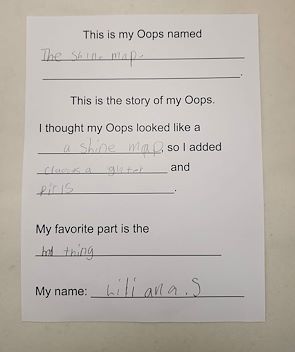 This is my Oops named
The shine map.
This is the story of my Oops.
I thought my Oops looked like a
a shine map, so I added
glitter and
.
My favorite part is the
thing
My name: Liliana.S